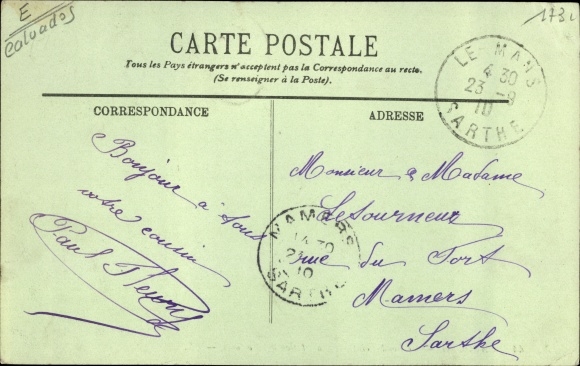 E
Calvados
173
CARTE POSTALE
Tous les Pays étrangers n'acceptent pas la Correspondance au recto.
(Se renseigner à la Poste).
CORRESPONDANCE
ADRESSE
LE MANS
4 30
23 -9
10
SARTHE
Bonjour à tous
votre cousin
Paul
Monsieur & Madame
Letourneux
rue du Fort
Mamers
Sarthe
MAMERS
14 30
10
SARTHE